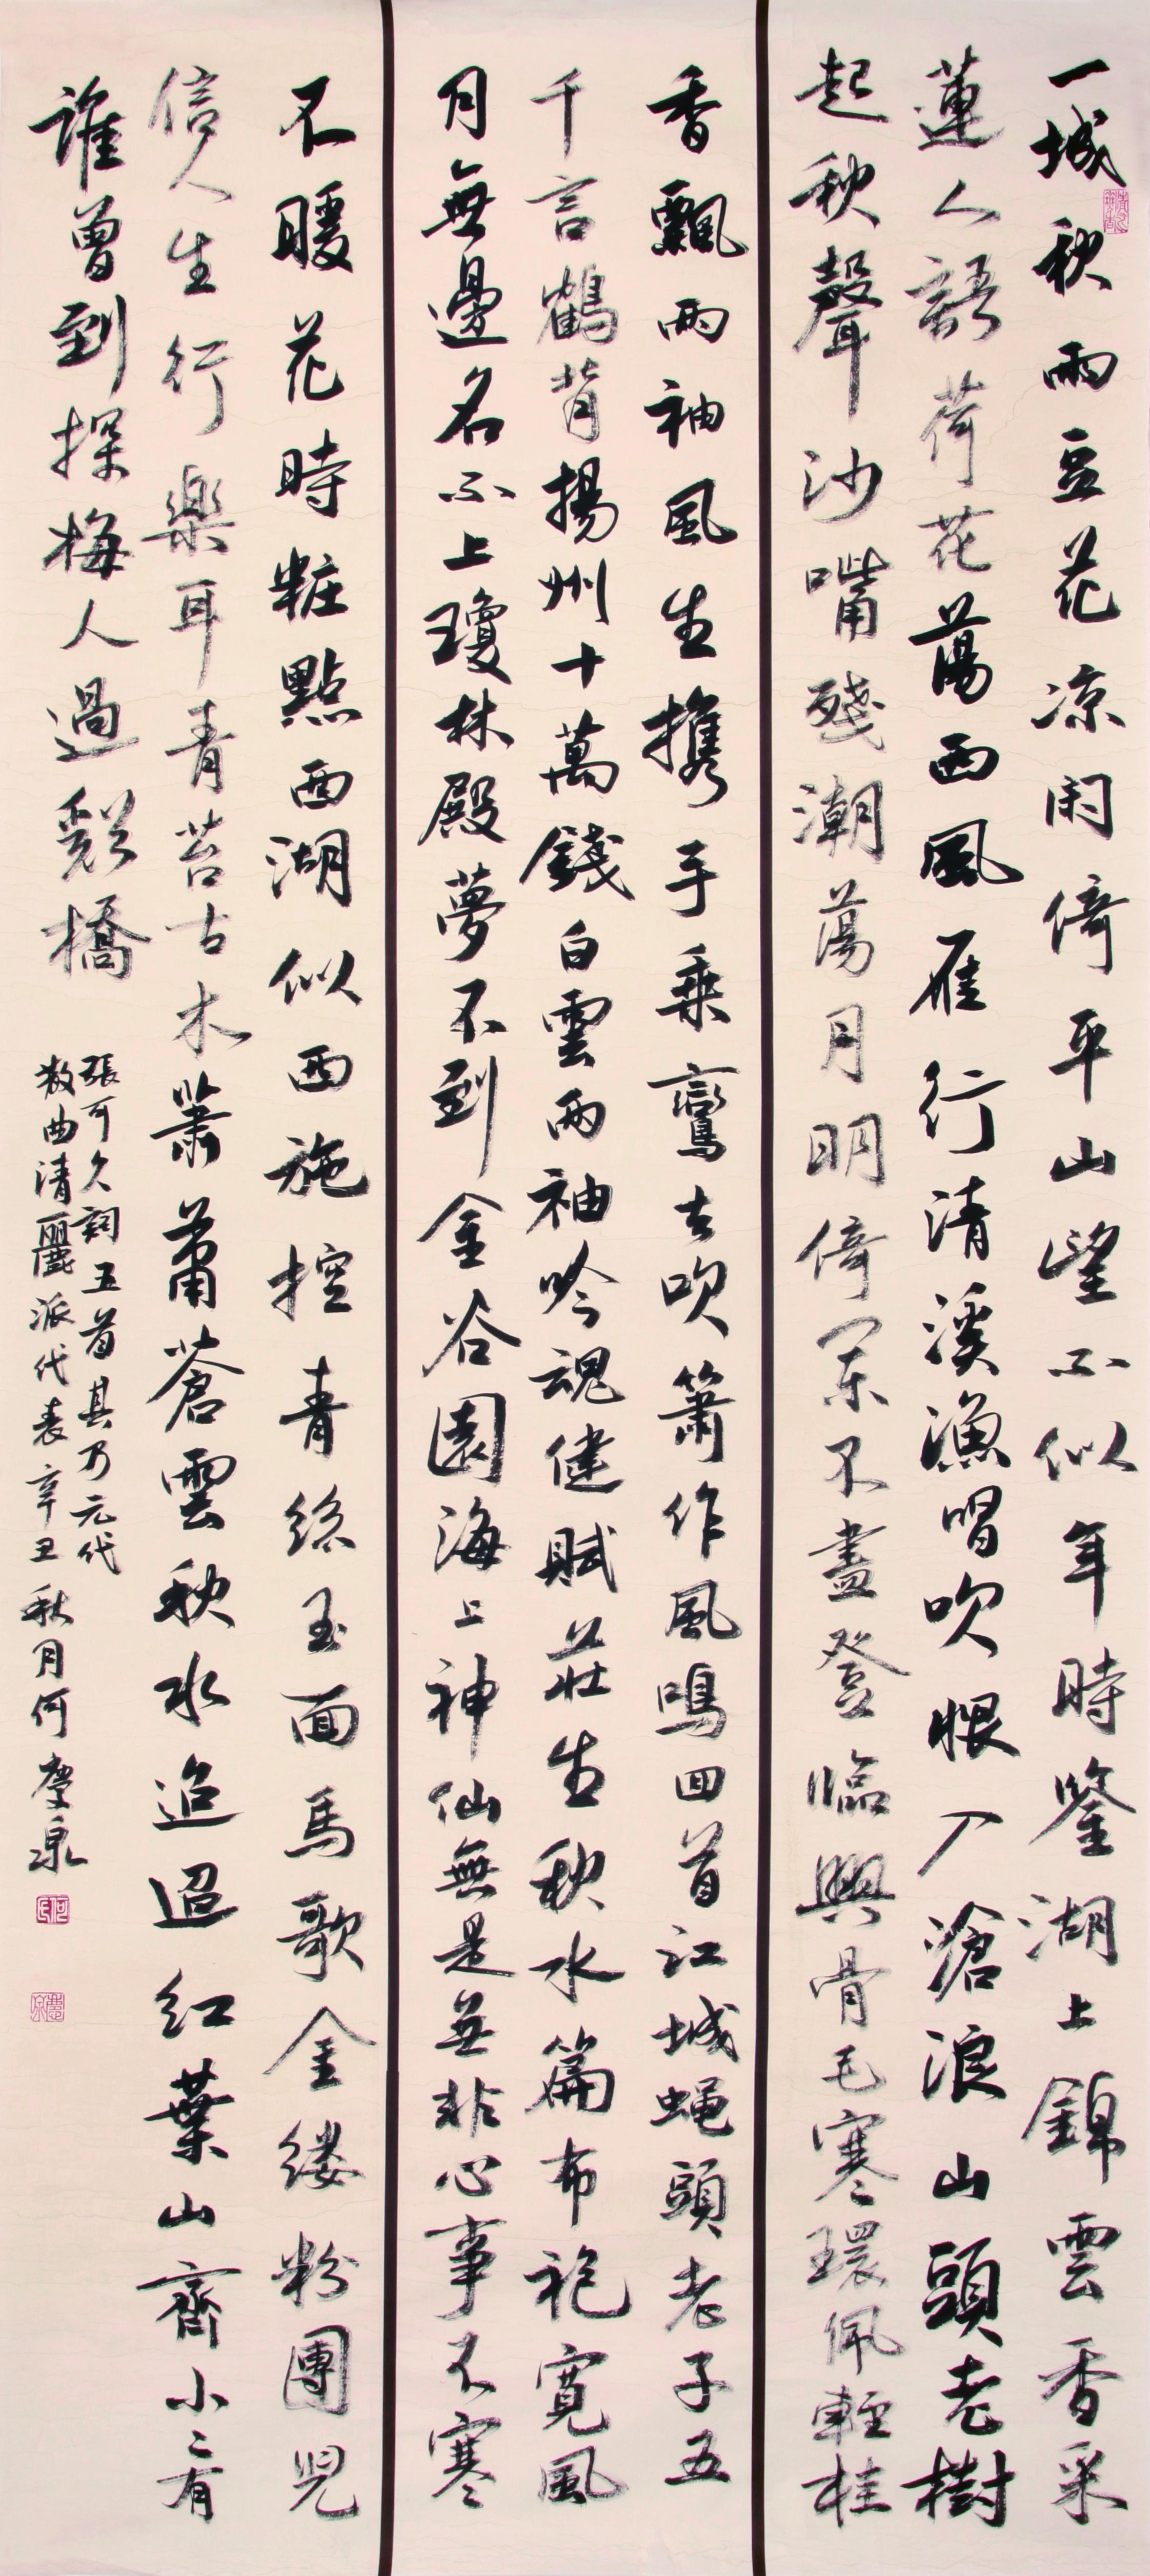 一城秋雨豆花凉闲倚平山望不似年時鑒湖上錦雲香采
蓮人語荷花蕩西風雁行清溪漁唱吹恨入滄浪山頭老樹
起秋聲沙嘴殘潮蕩月明倚闌不盡登臨興骨毛寒環佩輕桂
香飄兩袖風生携手乘鸞去吹簫作風鳴回首江城蝇頭老子五
千言鶴背揚州十萬錢白雲兩袖吟魂健賦莊生秋水篇布袍寬風
月無邊名不上瓊林殿夢不到金谷園海上神仙無是無非心事不寒
不暖花時粧點西湖似西施控青絲玉面馬歌金缕粉團兒
信人生行樂耳青苔古木蕭蕭蒼雲秋水迢迢紅葉山齋小小有
誰曾到探梅人過谿橋
張可久詞五首其乃元代
散曲清麗派代表辛丑秋月何慶泉